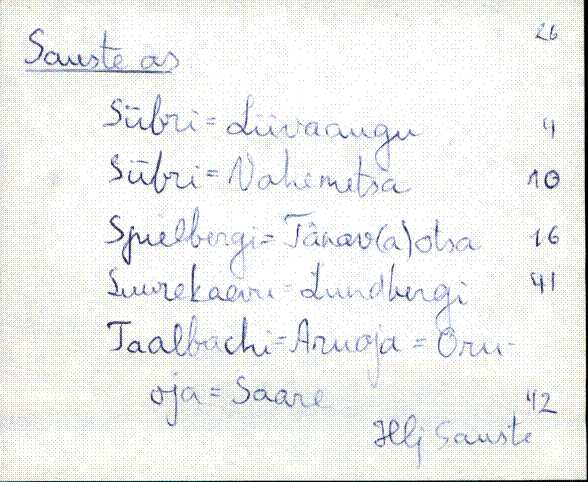 26
Sauste as
Siibri = Liivaaugu 4
Siibri = Vahemetsa 10
Spielbergi = Tänav(a)otsa 16
Suurekaevu = Lundbergi 41
Taalbachi = Aruoja = Oru-
oja = Saare 42
Hlj Sauste